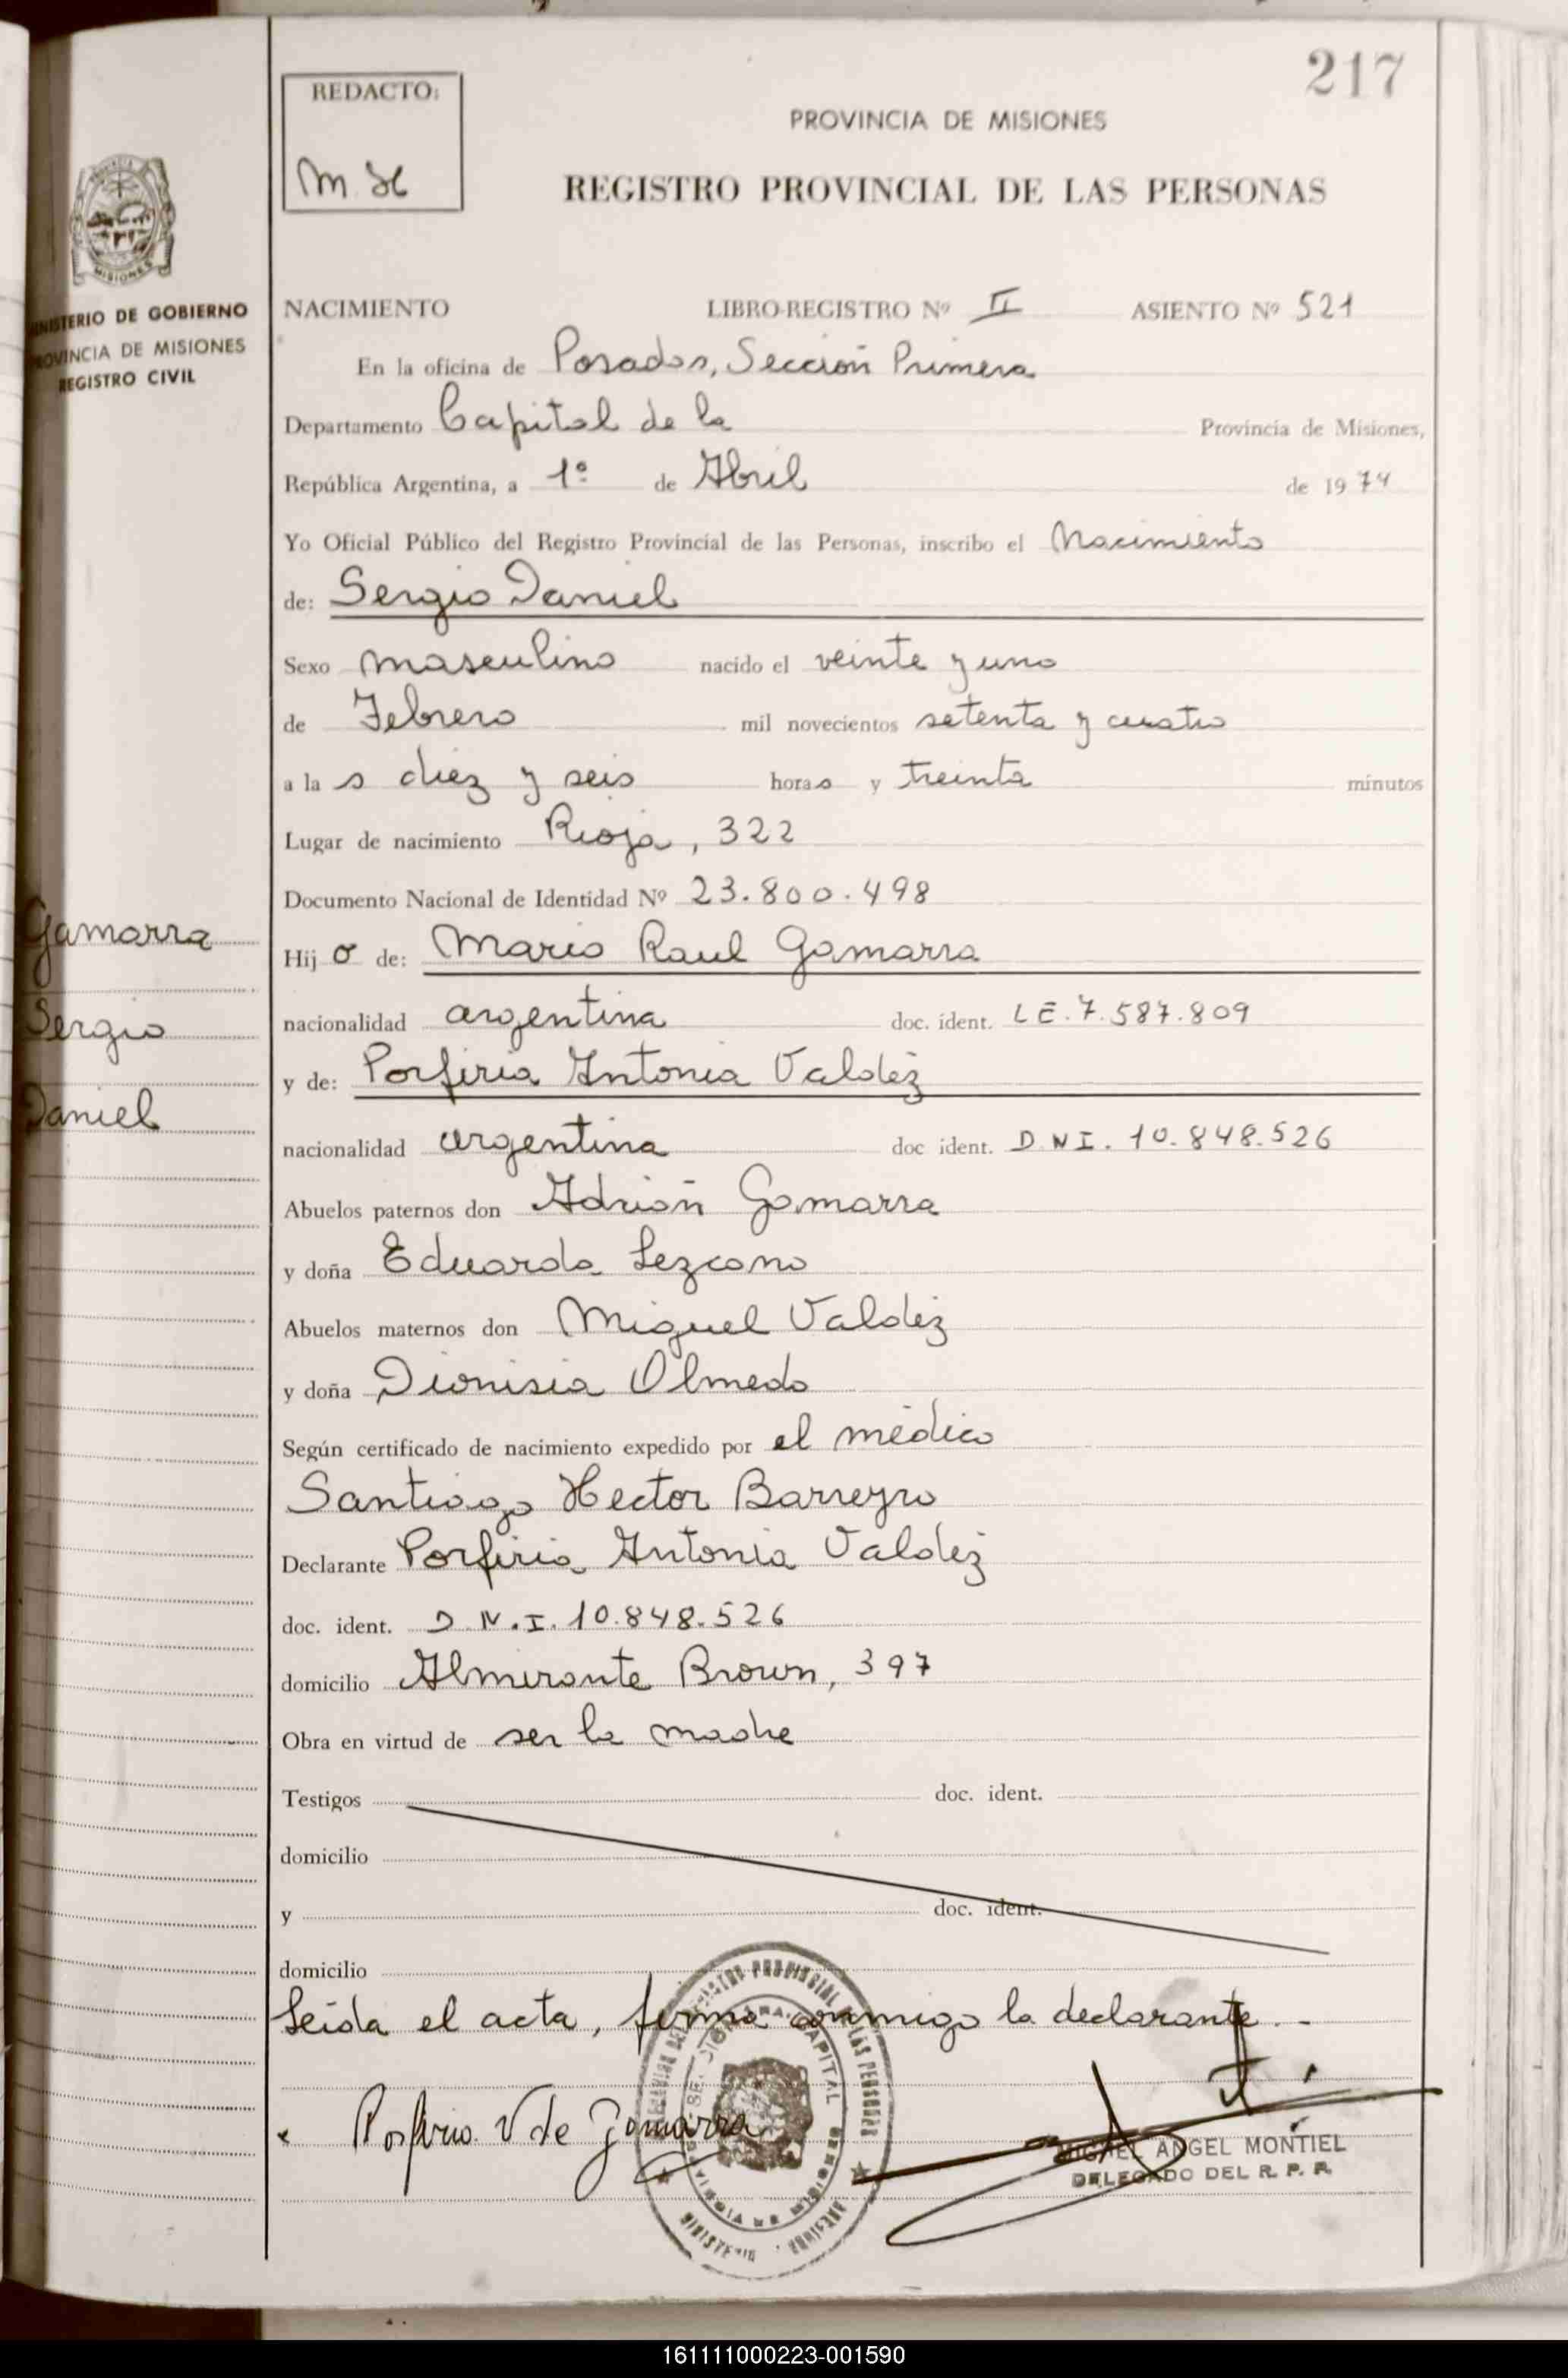 217
REDACTO:
PROVINCIA DE MISIONES
REGISTRO PROVINCIAL DE LAS PERSONAS
MISIONES
MINISTERIO DE GOBIERNO
PROVINCIA DE MISIONES
REGISTRO CIVIL
NACIMIENTO LIBRO-REGISTRO Nº II ASIENTO Nº 521
En la oficina de Posadas, Sección Primera
Departamento Capital de la Provincia de Misiones,
República Argentina, a 1º de Abril de 1974
Yo Oficial Público del Registro Provincial de las Personas, inscribo el Nacimiento
de: Sergio Daniel
Sexo masculino nacido el veinte y uno
de Febrero mil novecientos setenta y cuatro
a la s diez y seis horas y treinta minutos
Lugar de nacimiento Rioja, 322
Documento Nacional de Identidad Nº 23.800.498
Gamarra
Sergio
Daniel
Hij o de: Mario Raul Gamarra
nacionalidad argentina doc. ident. LE. 7.587.809
y de: Porfiria Antonia Valdéz
nacionalidad argentina doc ident. D.N.I. 10.848.526
Abuelos paternos don Adrián Gamarra
y doña Eduarda Lezcano
Abuelos maternos don Miguel Valdéz
y doña Dionisia Olmedo
Según certificado de nacimiento expedido por el médico
Santiago Hector Barreyro
Declarante Porfiria Antonia Valdéz
doc. ident. D.N.I. 10.848.526
domicilio Almirante Brown, 397
Obra en virtud de ser la madre
Testigos doc. ident.
domicilio
y doc. ident.
domicilio
Leída el acta, firma conmigo la declarante.-
Porfiria V de Gamarra
MIGUEL ANGEL MONTIEL
DELEGADO DEL R. P. P.
161111000223-001590